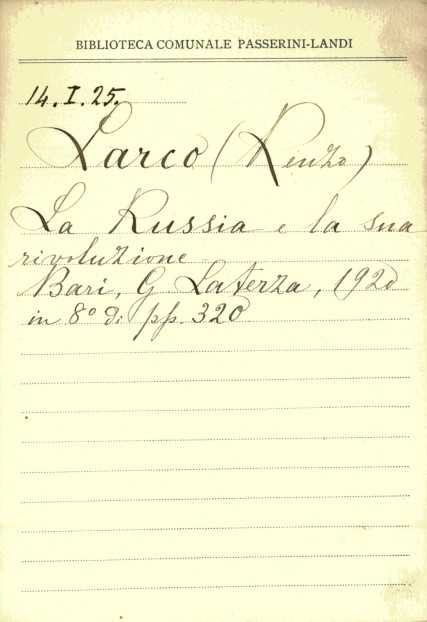 BIBLIOTECA COMUNALE PASSERINI-LANDI
14.I.25.
Larco (Renzo)
La Russia e la sua
rivoluzione
Bari, G Laterza, 1920
in 8° di pp. 320